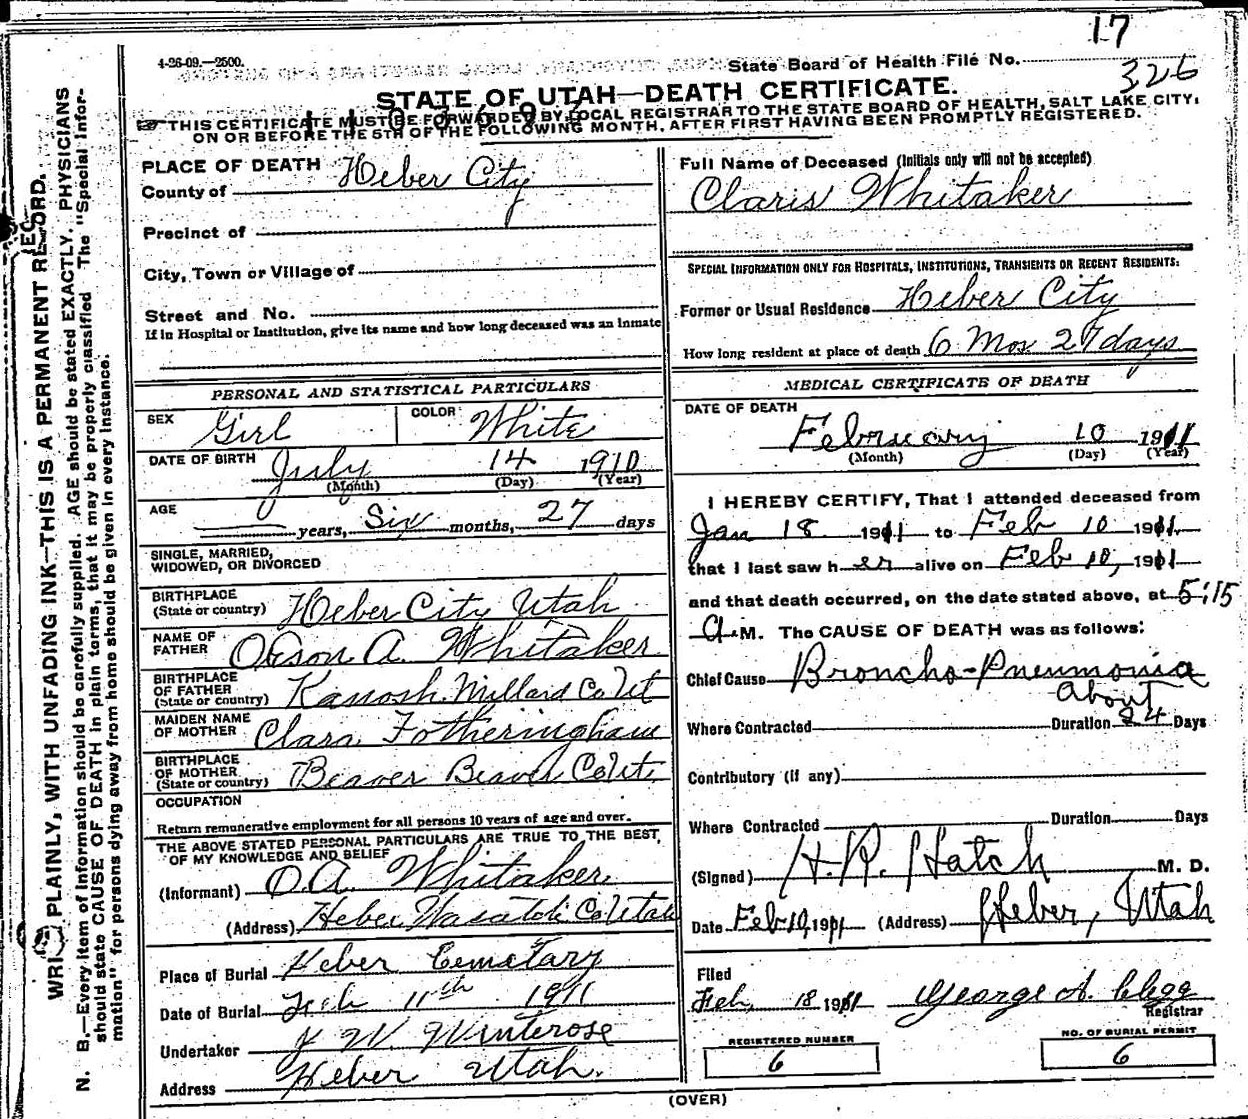 17
4-26-09.—2500.
State Board of Health File No.
326
STATE OF UTAH—DEATH CERTIFICATE.
THIS CERTIFICATE MUST BE FORWARDED BY LOCAL REGISTRAR TO THE STATE BOARD OF HEALTH, SALT LAKE CITY,
ON OR BEFORE THE 5TH OF THE FOLLOWING MONTH, AFTER FIRST HAVING BEEN PROMPTLY REGISTERED.
WRITE PLAINLY, WITH UNFADING INK—THIS IS A PERMANENT RECORD.
N. B.—Every item of information should be carefully supplied. AGE should be stated EXACTLY. PHYSICIANS
should state CAUSE OF DEATH in plain terms, that it may be properly classified. The "Special Infor-
mation" for persons dying away from home should be given in every instance.
PLACE OF DEATH
County of Heber City
Precinct of
City, Town or Village of
Street and No.
If in Hospital or Institution, give its name and how long deceased was an inmate
PERSONAL AND STATISTICAL PARTICULARS
SEX Girl COLOR White
DATE OF BIRTH July 14 1910
(Month) (Day) (Year)
AGE years, Six months, 27 days
SINGLE, MARRIED,
WIDOWED, OR DIVORCED
BIRTHPLACE
(State or country) Heber City Utah
NAME OF
FATHER Orson A. Whitaker
BIRTHPLACE
OF FATHER
(State or country) Kanosh. Millard Co Ut
MAIDEN NAME
OF MOTHER Clara Fotheringham
BIRTHPLACE
OF MOTHER
(State or country) Beaver Beaver Co Ut.
OCCUPATION
Return remunerative employment for all persons 10 years of age and over.
THE ABOVE STATED PERSONAL PARTICULARS ARE TRUE TO THE BEST,
OF MY KNOWLEDGE AND BELIEF
(Informant) O.A. Whitaker
(Address) Heber Wasatch Co Utah
Place of Burial Heber Cemetary
Date of Burial Feb 11th 1911
Undertaker J W. Winterose
Address Heber Utah.
Full Name of Deceased (Initials only will not be accepted)
Claris Whitaker
SPECIAL INFORMATION ONLY FOR HOSPITALS, INSTITUTIONS, TRANSIENTS OR RECENT RESIDENTS:
Former or Usual Residence Heber City
How long resident at place of death 6 Mos 27 days
MEDICAL CERTIFICATE OF DEATH
DATE OF DEATH
February 10 1911
(Month) (Day) (Year)
I HEREBY CERTIFY, That I attended deceased from
Jan 18 1911 to Feb 10 1911
that I last saw h er alive on Feb 10, 1911
and that death occurred, on the date stated above, at 5:15
A.M. The CAUSE OF DEATH was as follows:
Chief Cause Broncho-Pneumonia
About
Where Contracted Duration 24 Days
Contributory (if any)
Where Contracted Duration Days
(Signed) H.R. Hatch M. D.
Date Feb 10, 1911 (Address) Heber, Utah
Filed
Feb, 18 1911 George A. Clegg
Registrar
REGISTERED NUMBER
6
NO. OF BURIAL PERMIT
6
(OVER)